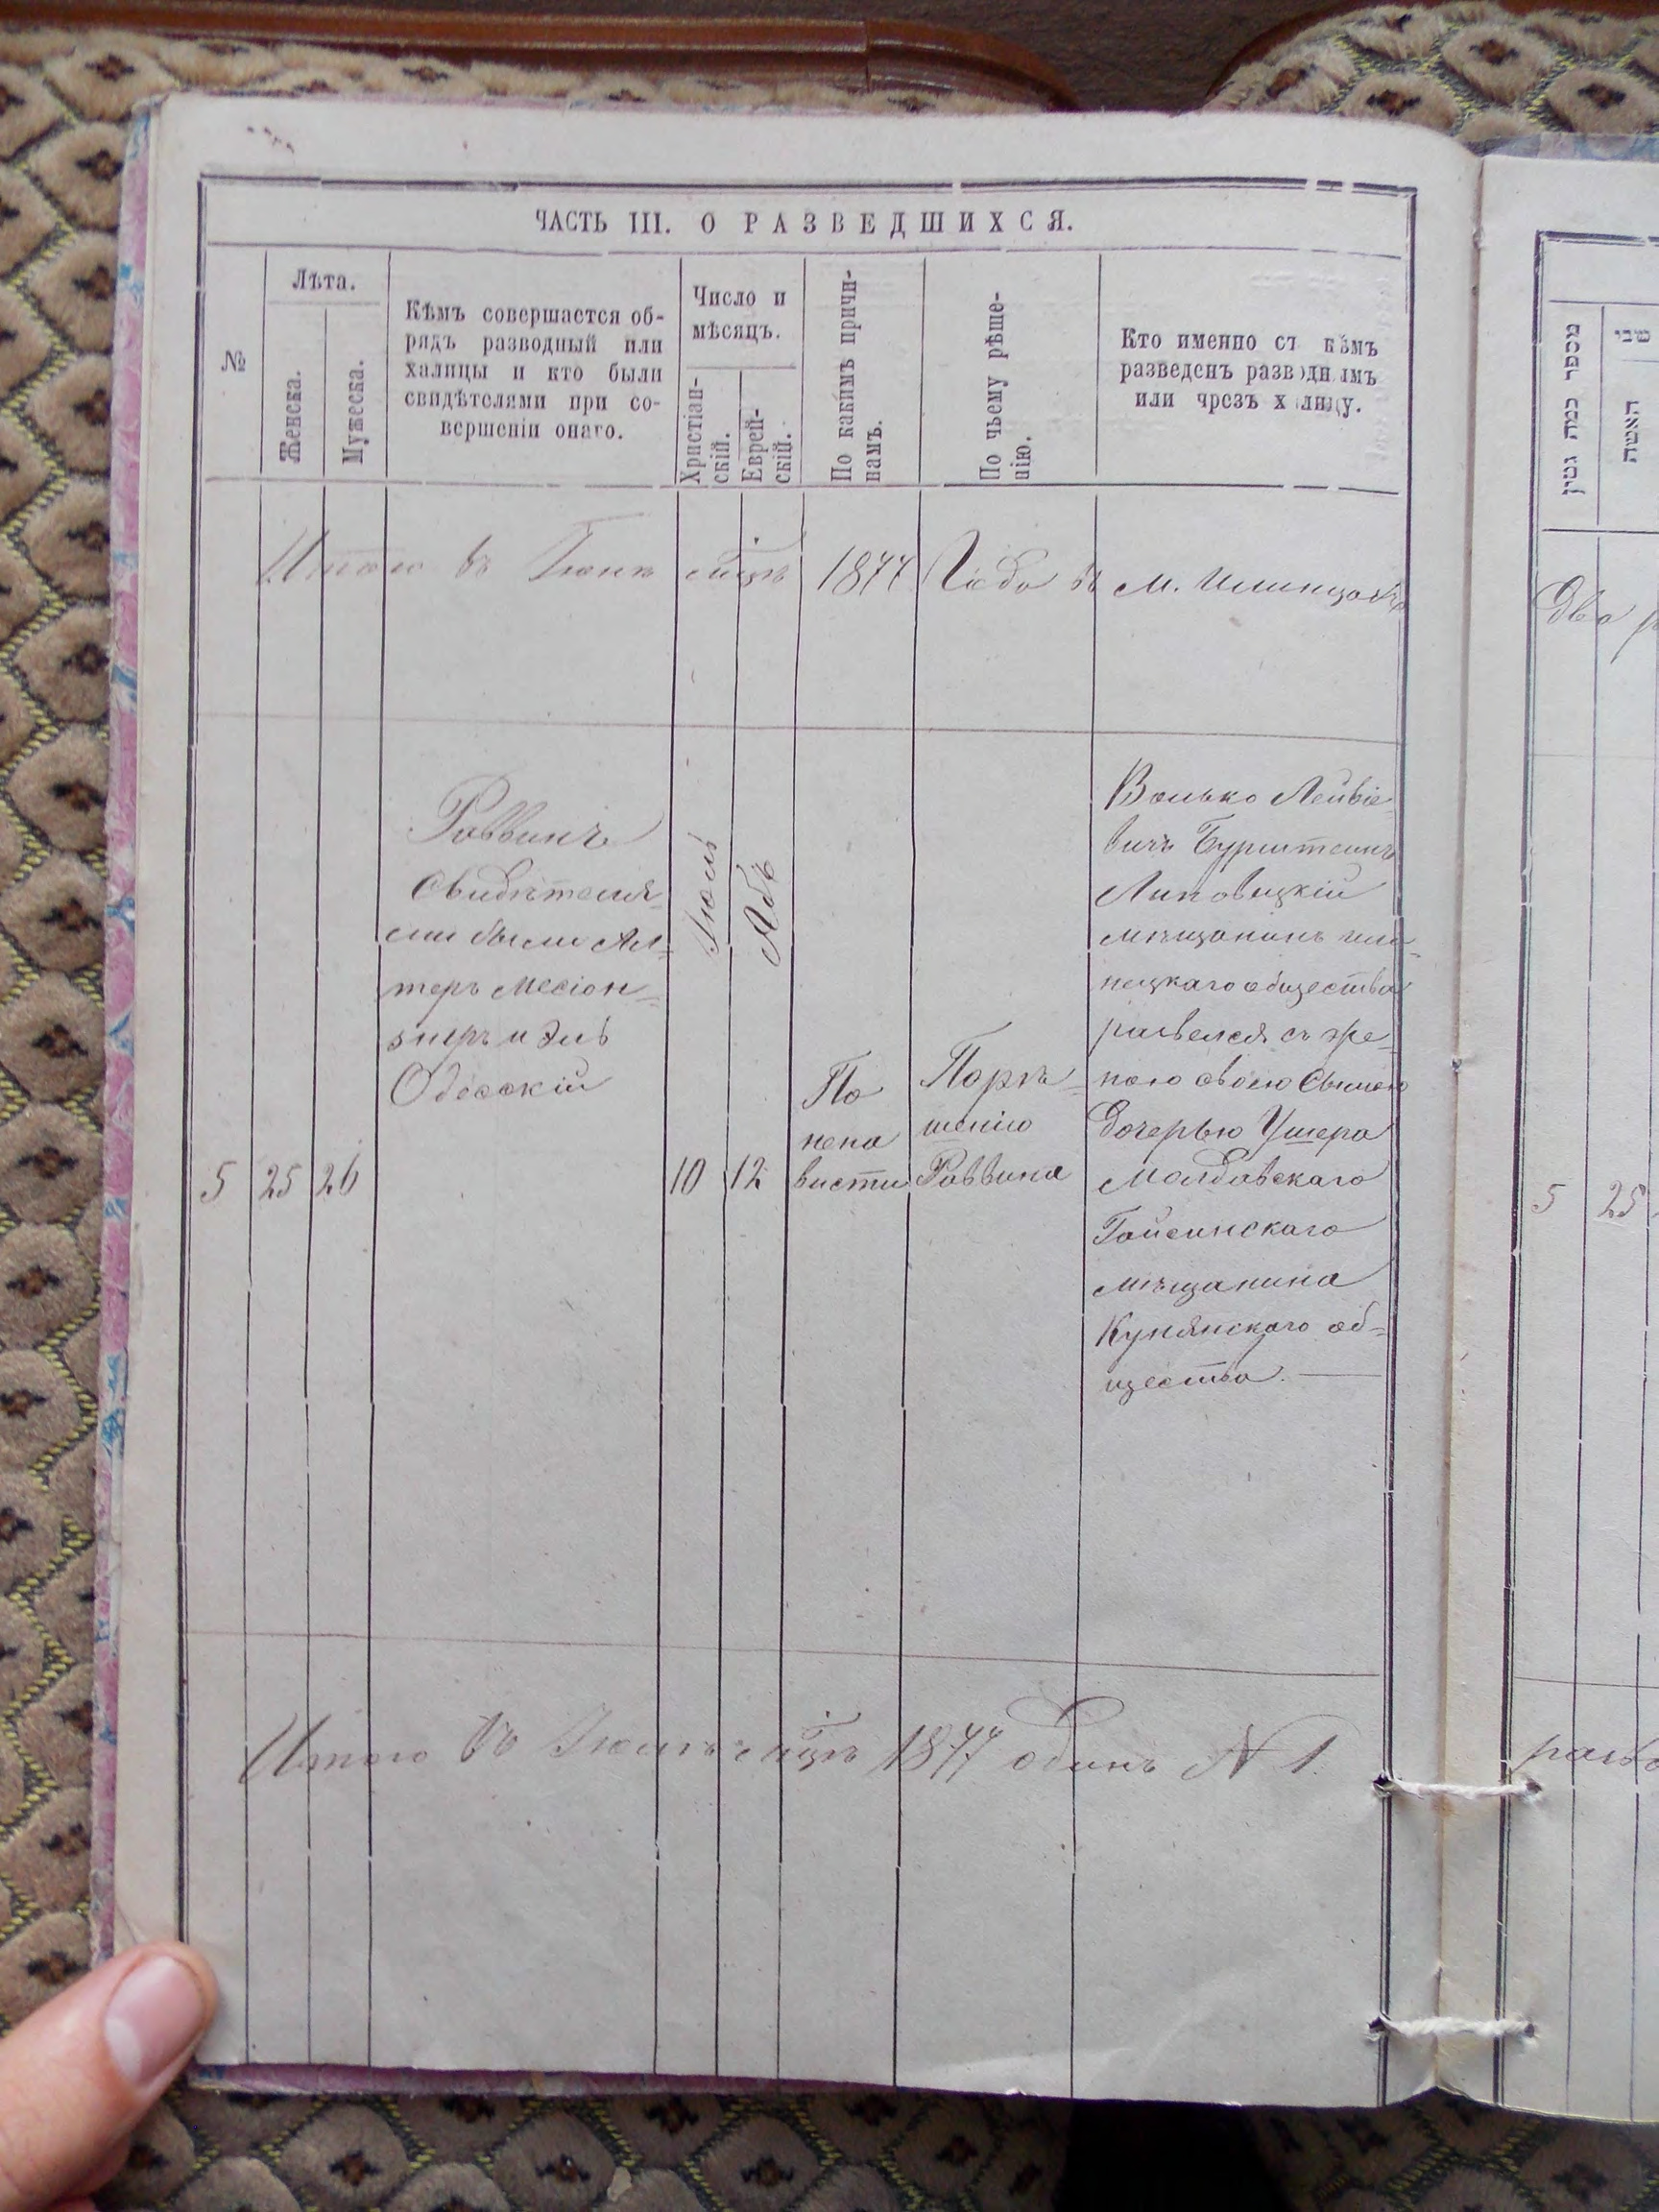 ЧАСТЬ III. О РАЗВЕДШИХСЯ.
№
Лѣта.
Женска.
Мужеска.
Кѣмъ совершается об-
рядъ разводный или
халицы и кто были
свидѣтелями при со-
вершеніи онаго.
Число и
мѣсяцъ.
Христіан-
скій.
Еврей-
скій.
По какимъ причи-
намъ.
По чьему рѣше-
нію.
Кто именно съ кѣмъ
разведенъ разводнымъ
или чрезъ халицу.
Итого въ Іюнѣ мцѣ 1877 Года въ м.
5
25
26
Раввинъ
Свидѣтеля-
ми были Ал-
теръ
и
Одесскій
Іюль
10
Абъ
12
По
нена
висти
По рѣ-
шенію
Раввина
Волько Лейбіе-
вичъ Бурштейнъ
Липовецкій
мѣщанинъ или-
нецкаго общества
развелся съ же-
ною своею
дочерью Ушера
Молдавскаго
Гайсинскаго
мѣщанина
Кунянскаго об-
щества.
Итого въ Іюлѣ мцѣ 1877 одинъ N 1.
מספר כמה גטין
שני
האשה
Два р
5
25
разво